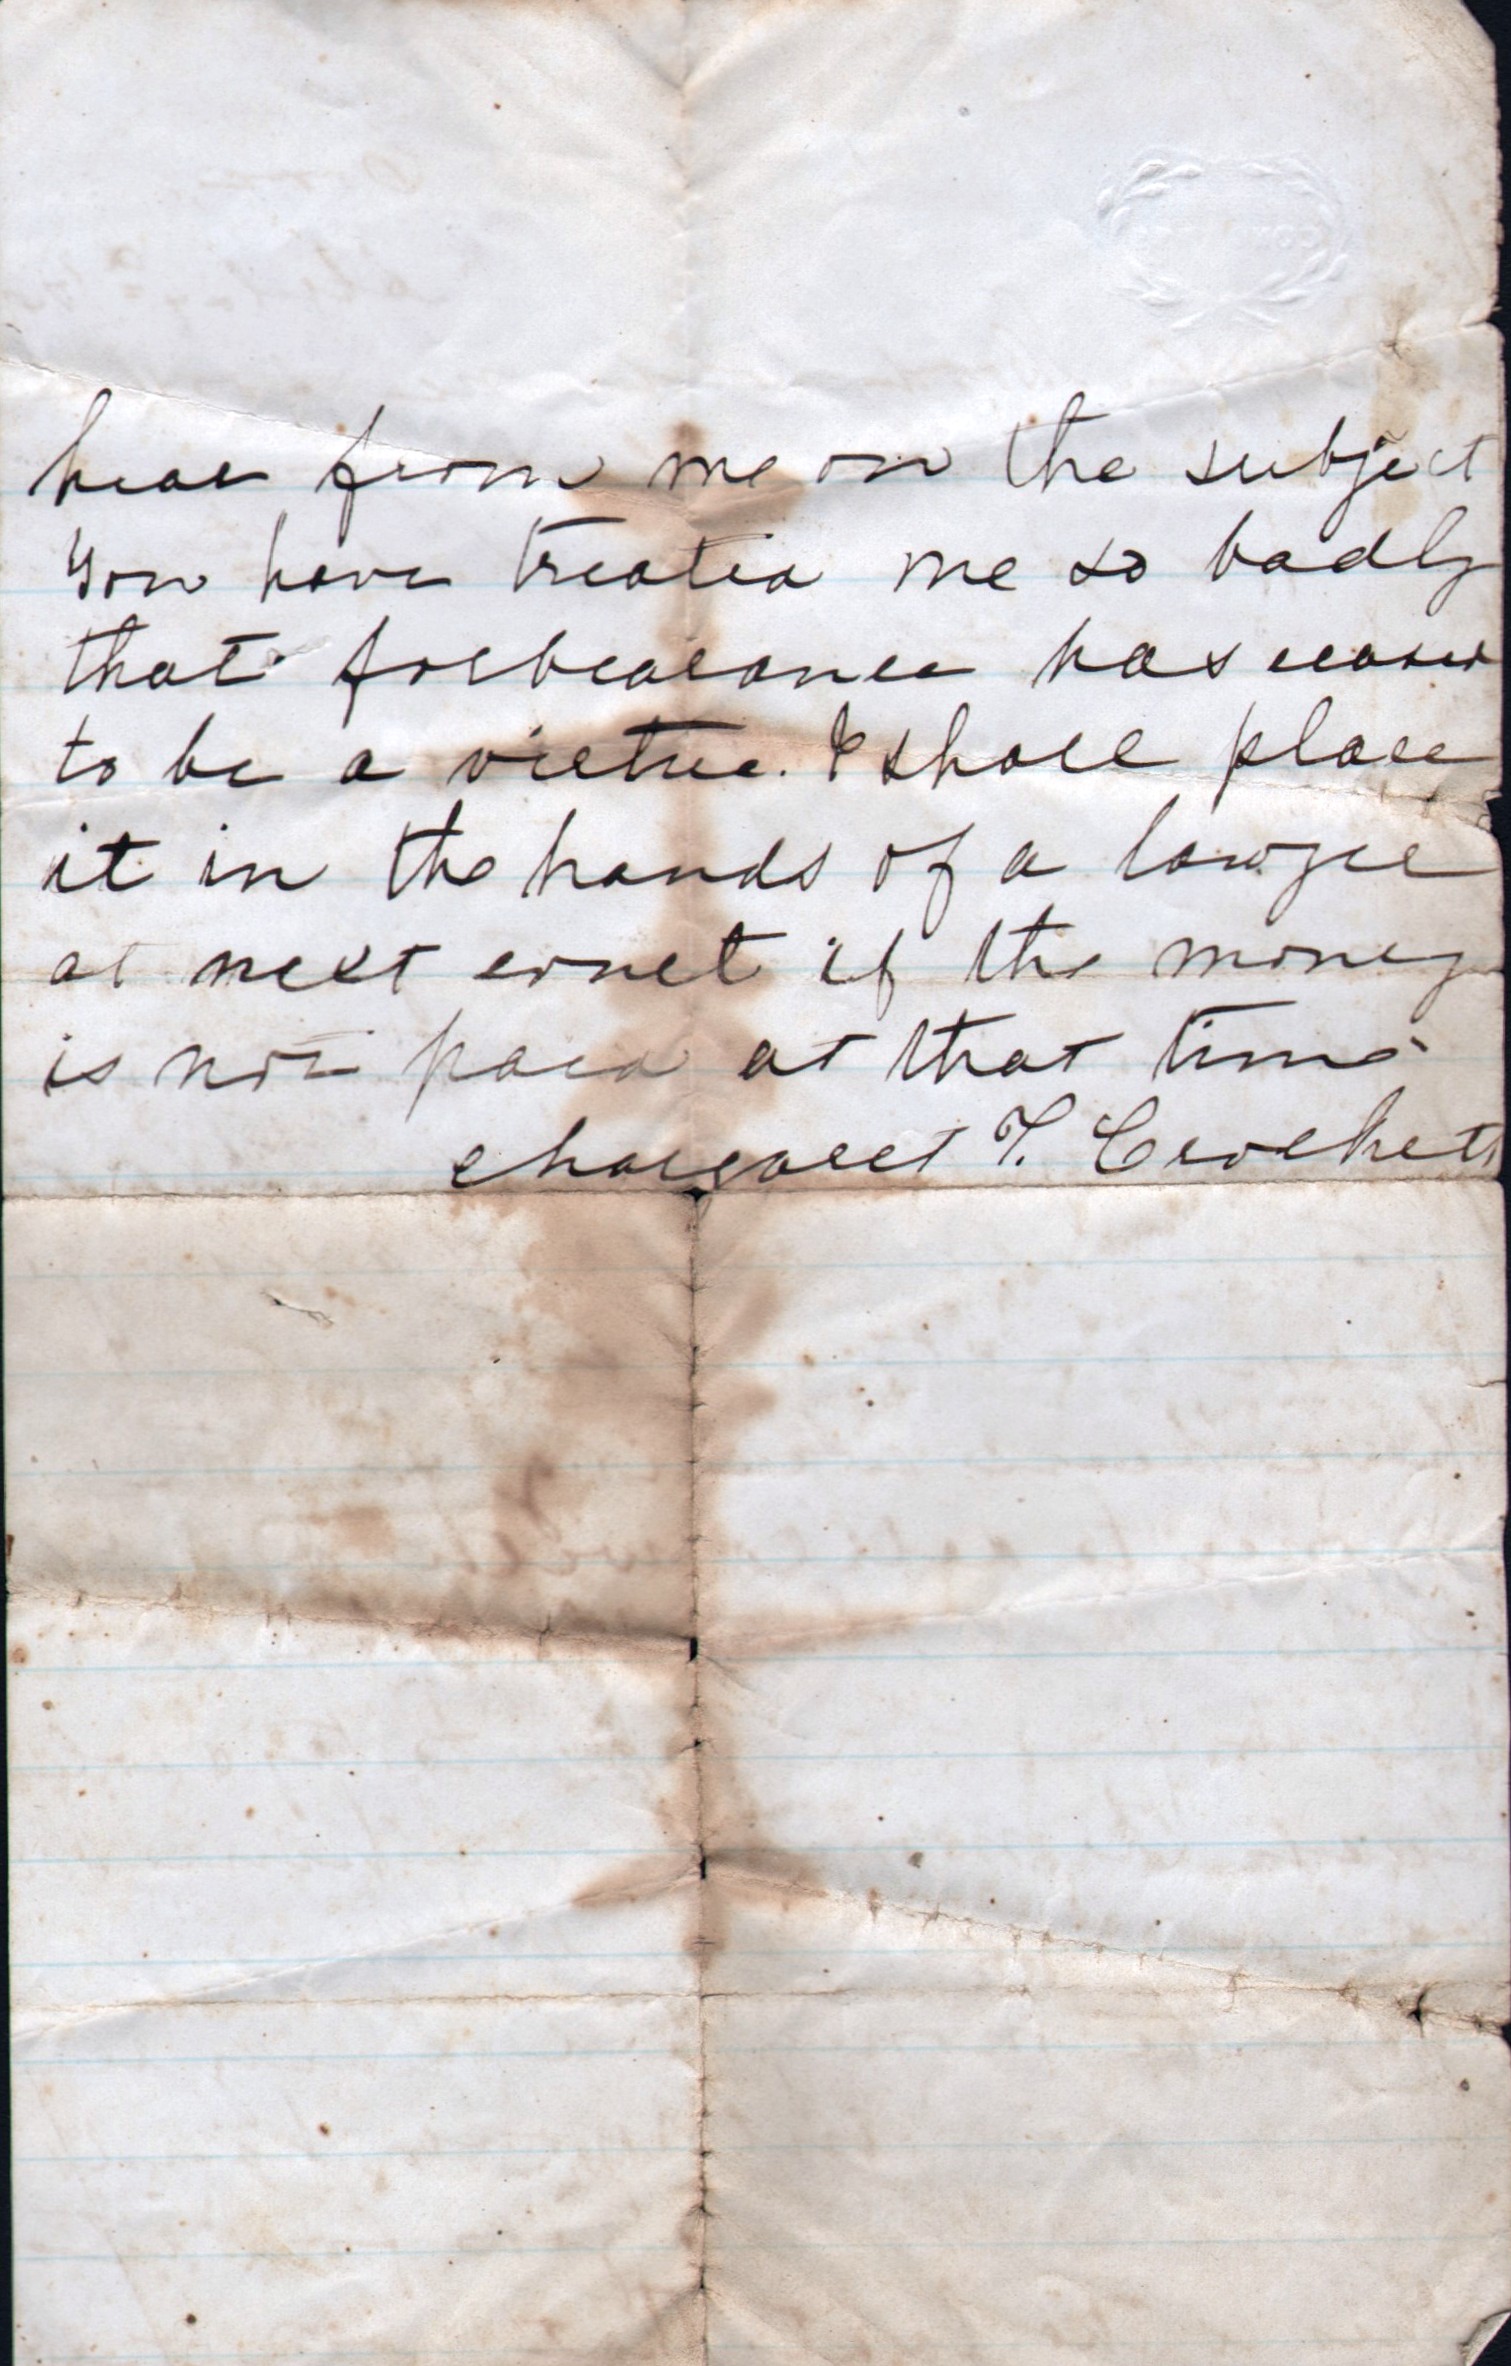 hear from me on the subject
You have treated me so badly
that forbearance has ceased
to be a virtue. I shall place
it in the hands of a lawyer
at next court if the money
is not paid at that time
Margaret T. Crockett